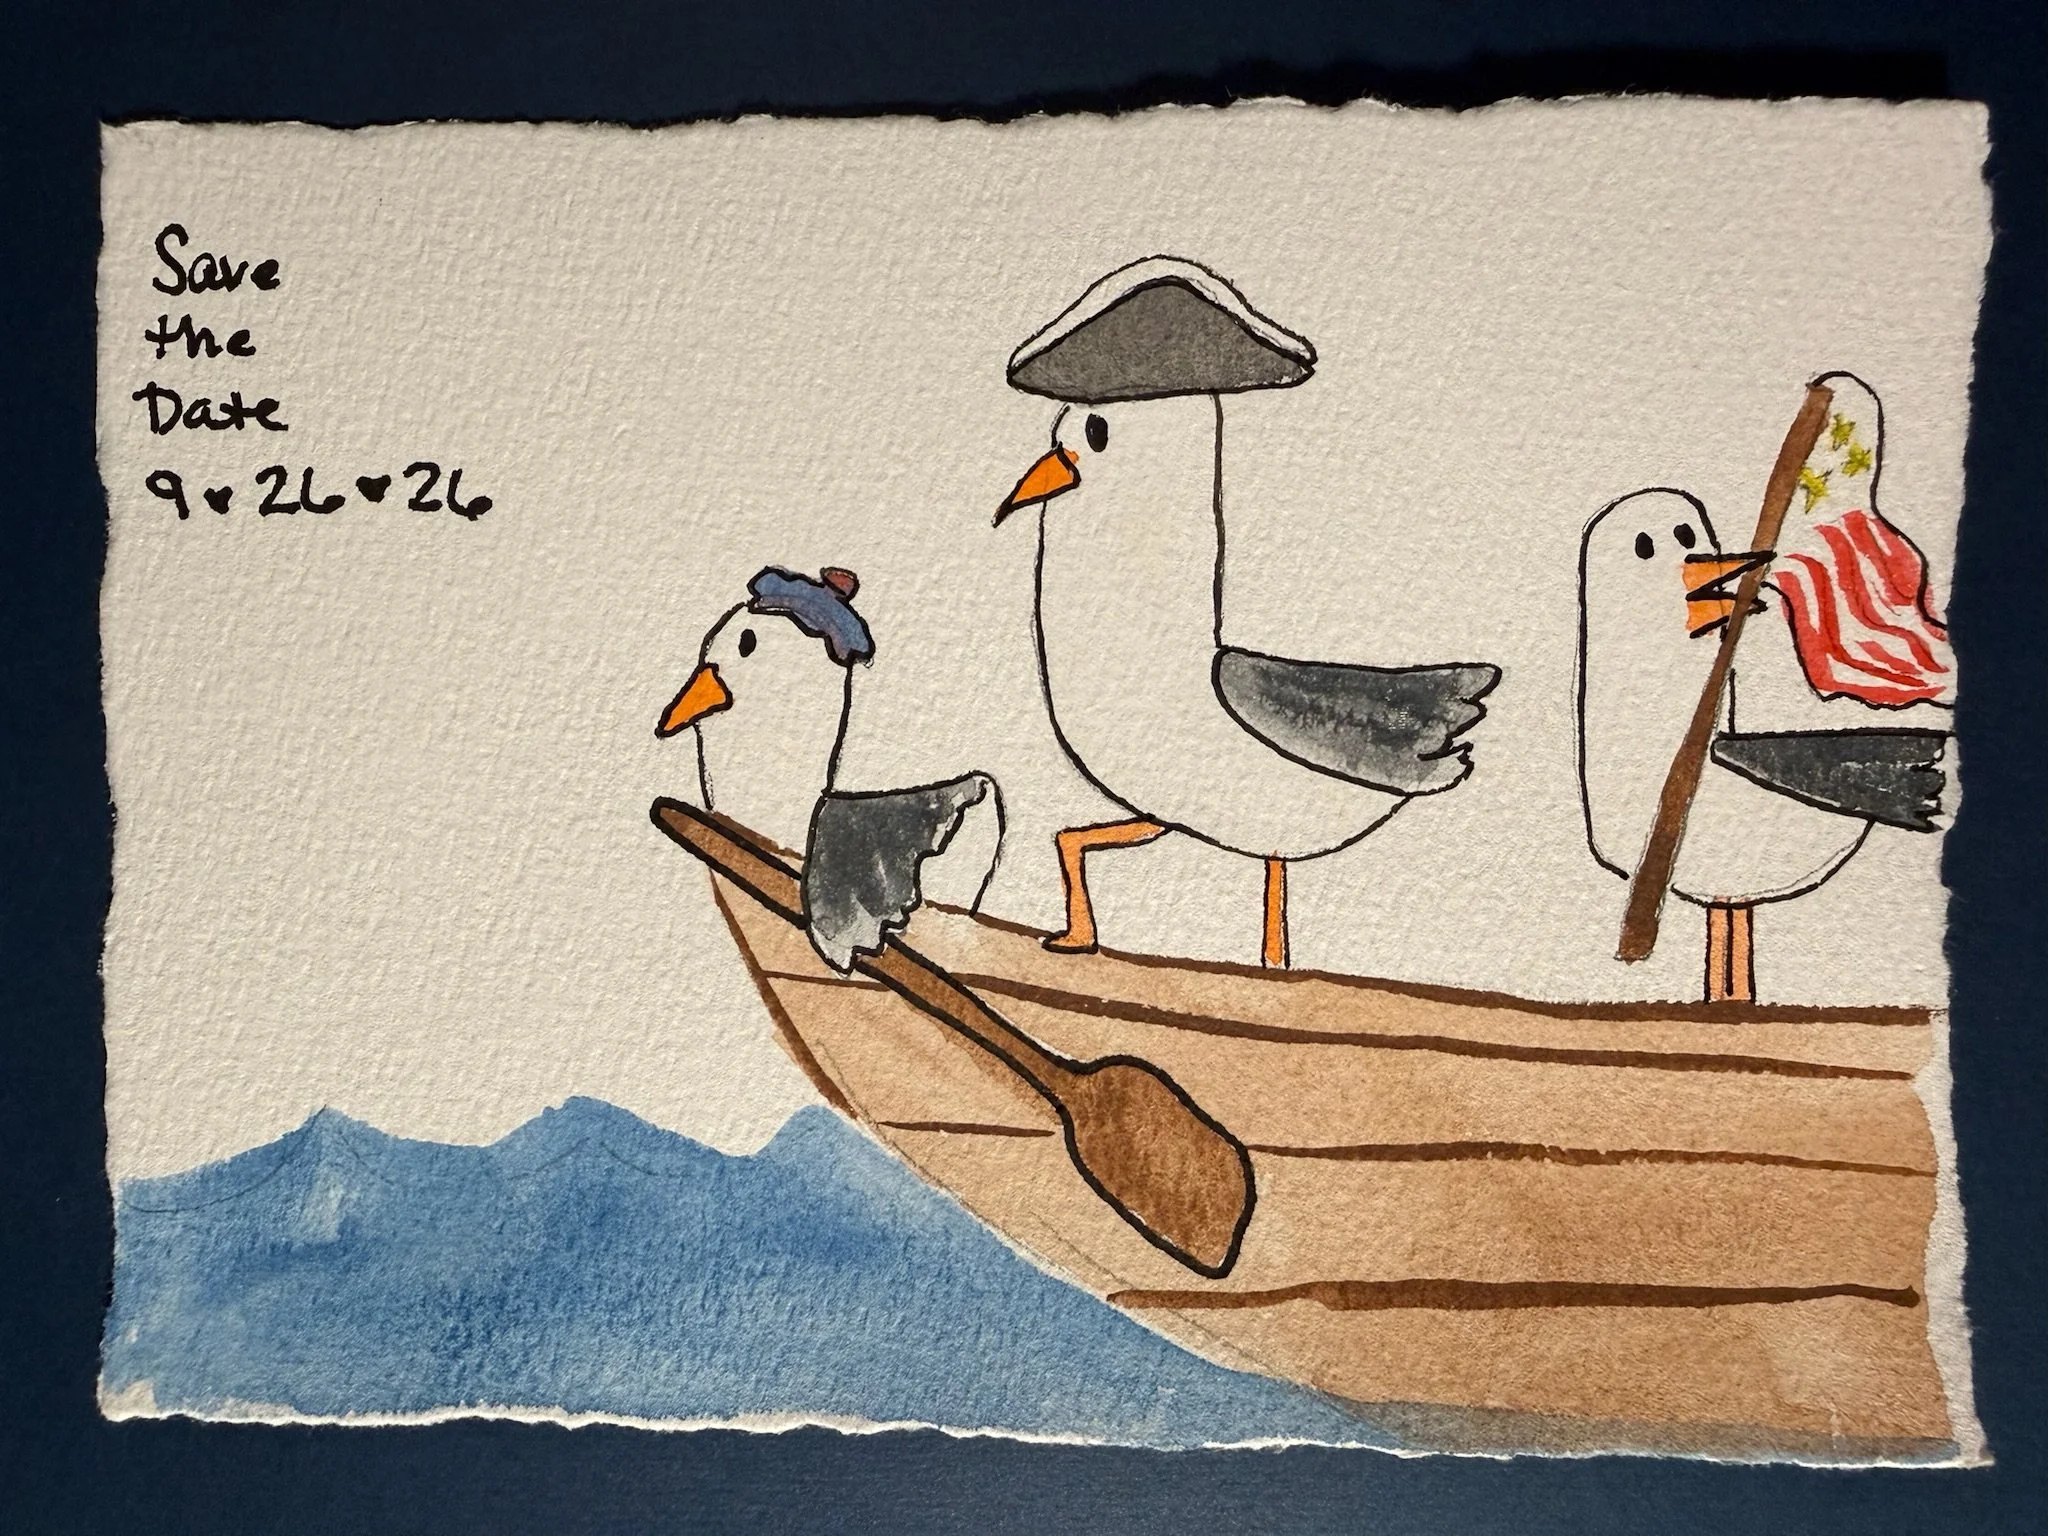 Save
the
Date
9♥26♥26